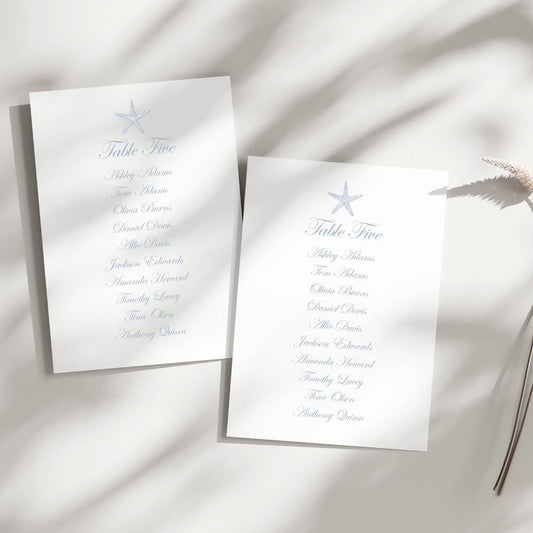 Table Five
Ashley Adams
Tom Adams
Olivia Burns
Daniel Davis
Allie Davis
Jackson Edwards
Amanda Howard
Timothy Lacey
Tina Olsen
Anthony Quinn
Table Five
Ashley Adams
Tom Adams
Olivia Burns
Daniel Davis
Allie Davis
Jackson Edwards
Amanda Howard
Timothy Lacey
Tina Olsen
Anthony Quinn